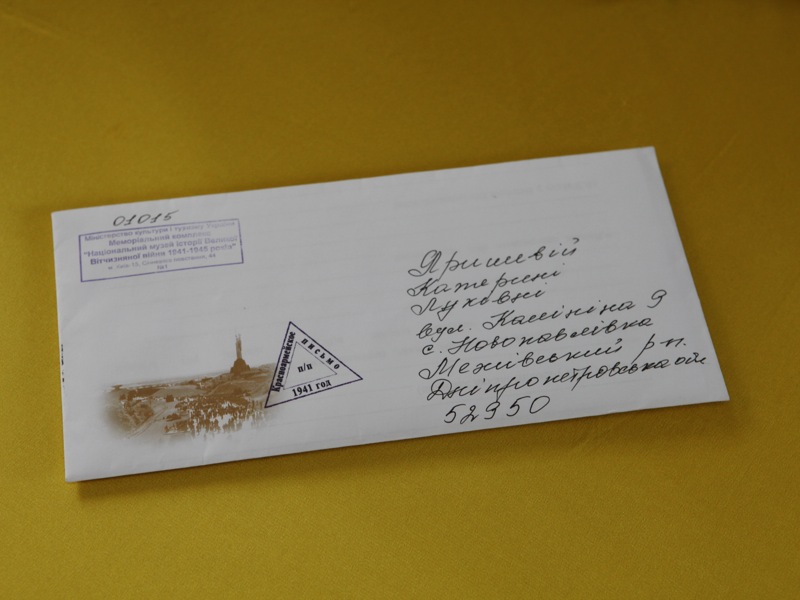 01015
Міністерство культури і туризму України
Меморіальний комплекс
"Національний музей історії Великої
Вітчизняної війни 1941-1945 років"
м. Київ 15, 44
№1
Красноармейское
письмо
п/п
1941 год
Яришевій
Катерині
Луховні
вул. Калініна 9
с. Новопавлівка
Межівський рн.
Дніпропетровська обл
52950